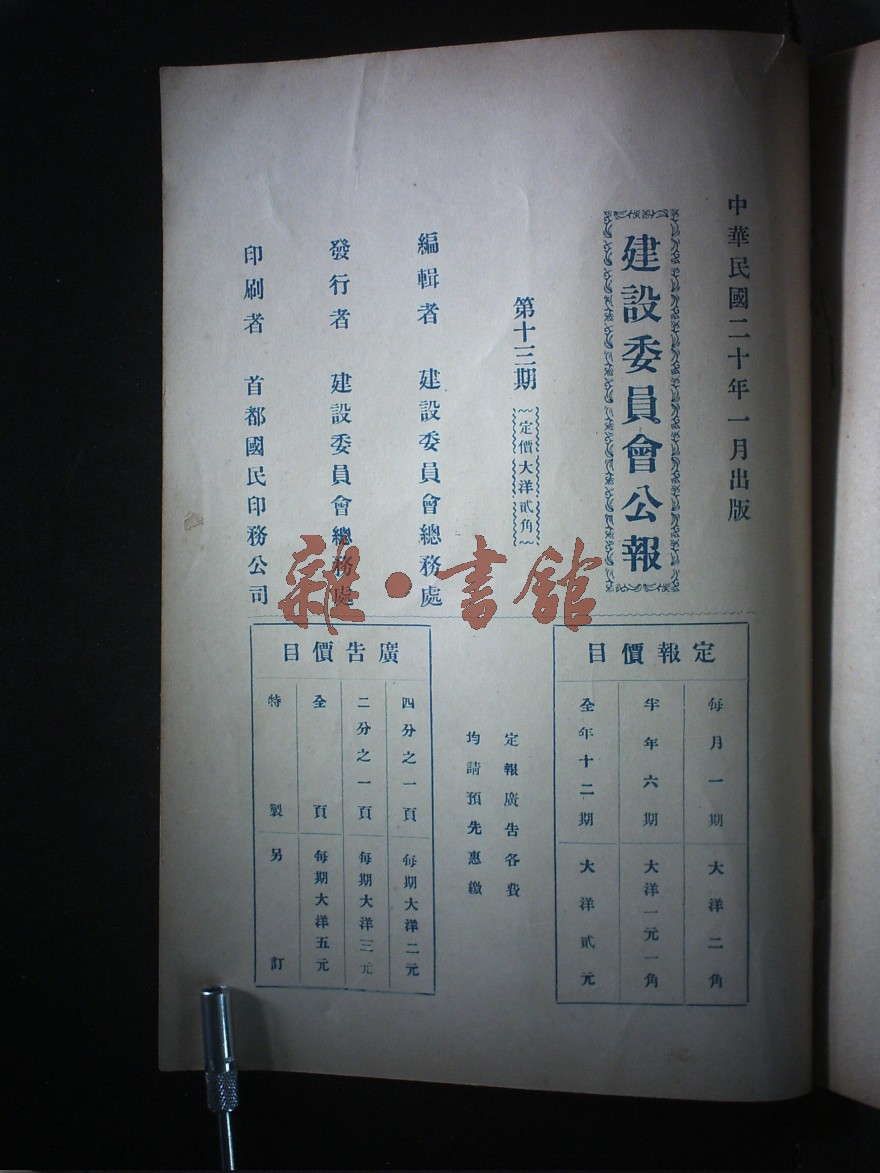 中華民國二十年一月出版
建設委員會公報
第十三期
定價大洋貳角
編輯者 建設委員會總務處
發行者 建設委員會總務處
印刷者 首都國民印務公司
定報價目
每月一期 大洋二角
半年六期 大洋一元一角
全年十二期 大洋貳元
定報廣告各費
均請預先惠繳
廣告價目
四分之一頁 每期大洋二元
二分之一頁 每期大洋三元
全頁 每期大洋五元
特製 另訂
雜·書館